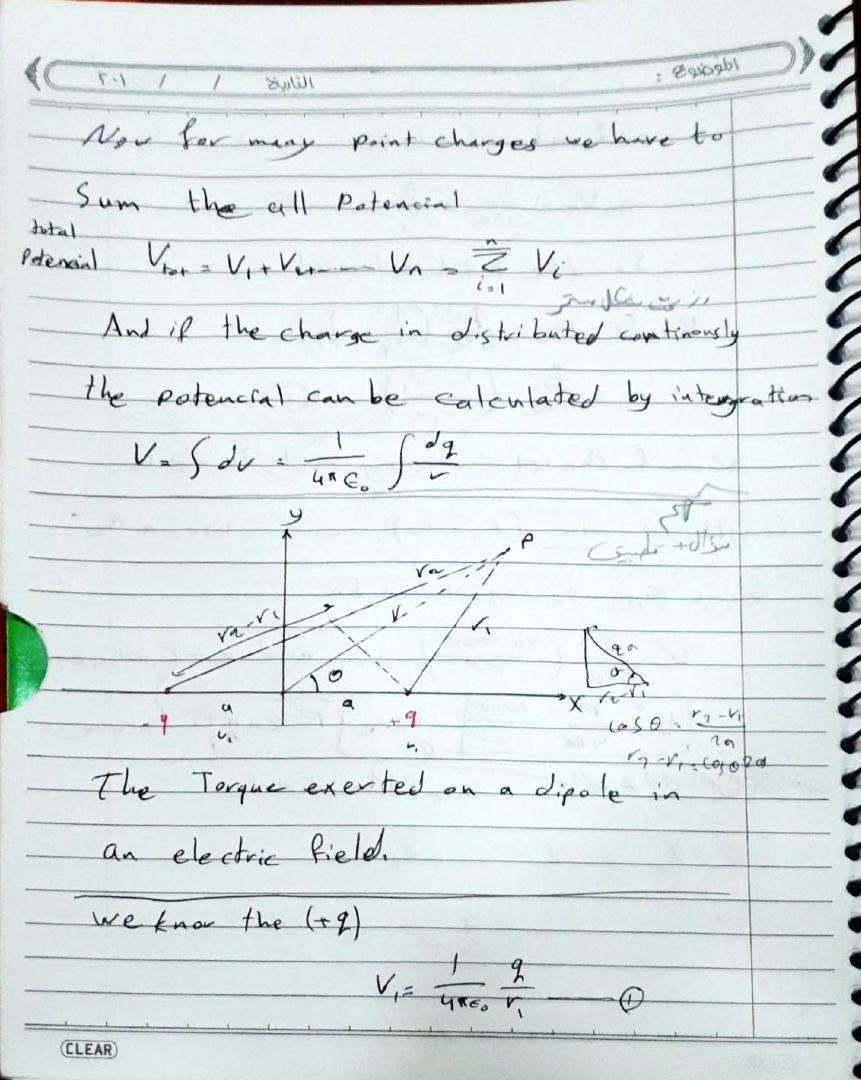 الموضوع :
التاريخ / / ٢٠١
Now for many point charges we have to
Sum the all Potencial
total
Potencial V_tot = V₁ + V₂+------ Vₙ = \sum_{i=1}^{n} V_i
And if the charge in distributed continously
the potencial can be calculated by integration
V = ∫ dv = \frac{1}{4πε₀} ∫ \frac{dq}{r}
سؤال + تطبيق
y
P
r₂
r₂-r₁
r
r₁
θ
a
a
X
-q
+q
r₂
r₁
2a
θ
r₂-r₁
cos θ = \frac{r₂-r₁}{2a}
r₂-r₁ = cosθ 2a
The Torque exerted on a dipole in
an electric field.
we know the (+q)
V₁ = \frac{1}{4πε₀} \frac{q}{r₁} —— ①
CLEAR